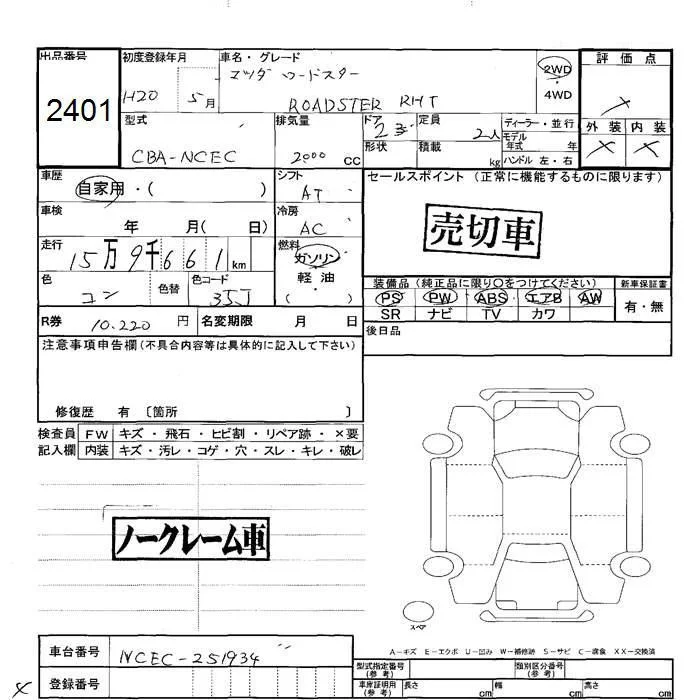 出品番号 初度登録年月 車名・グレード 評価点
2401 H20 5月 マツダ ロードスター 2WD
ROADSTER RHT ・4WD
型式 排気量 ドア 2 定員 2人 ディーラー・並行 外装 内装
CBA-NCEC 2000 CC 形状 積載 kg モデル年式 年 × ×
ハンドル 左・右
車歴 自家用・( ) シフト AT セールスポイント (正常に機能するものに限ります)
車検 年 月( 日) 冷房 AC 売切車
走行 15万9千661km 燃料 ガソリン
色 コン 色替 色コード 35J 軽油・( )
装備品 (純正品に限り○をつけてください) 新車保証書
PS PW ABS エアB AW 有・無
SR ナビ TV カワ
R券 10.220 円 名変期限 月 日 後日品
注意事項申告欄 (不具合内容等は具体的に記入して下さい)
修復歴 有 〔箇所 〕
検査員 FW キズ・飛石・ヒビ割・リペア跡・×要
記入欄 内装 キズ・汚レ・コゲ・穴・スレ・キレ・破レ
ノークレーム車
スペア
A-キズ E-エクボ U-凹み W-補修跡 S-サビ C-腐食 XX-交換済
車台番号 NCEC-251934
登録番号
型式指定番号 (参考) 類別区分番号 (参考)
車庫証明用 (参考) 長さ cm 幅 cm 高さ cm